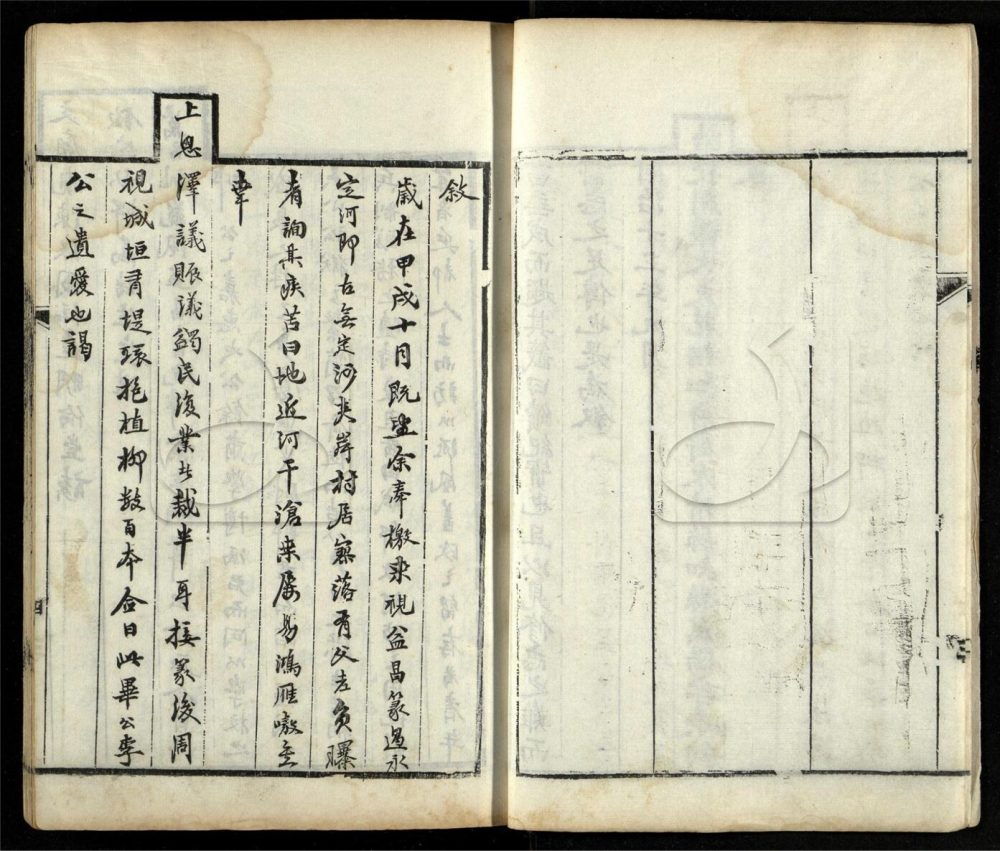 敘
歲在甲戌十月既望余奉檄來視益昌篆過永
定河即古無定沙夾岸村居寥落有父老負曝
者詢其疾苦曰地近河干滄桑屢易鴻雁嗷嗷
幸
上恩澤議賑議蠲民復業者裁半耳接篆後周
視城垣有堤環抱植柳數百本僉曰此畢公李
公之遺愛也謁
四